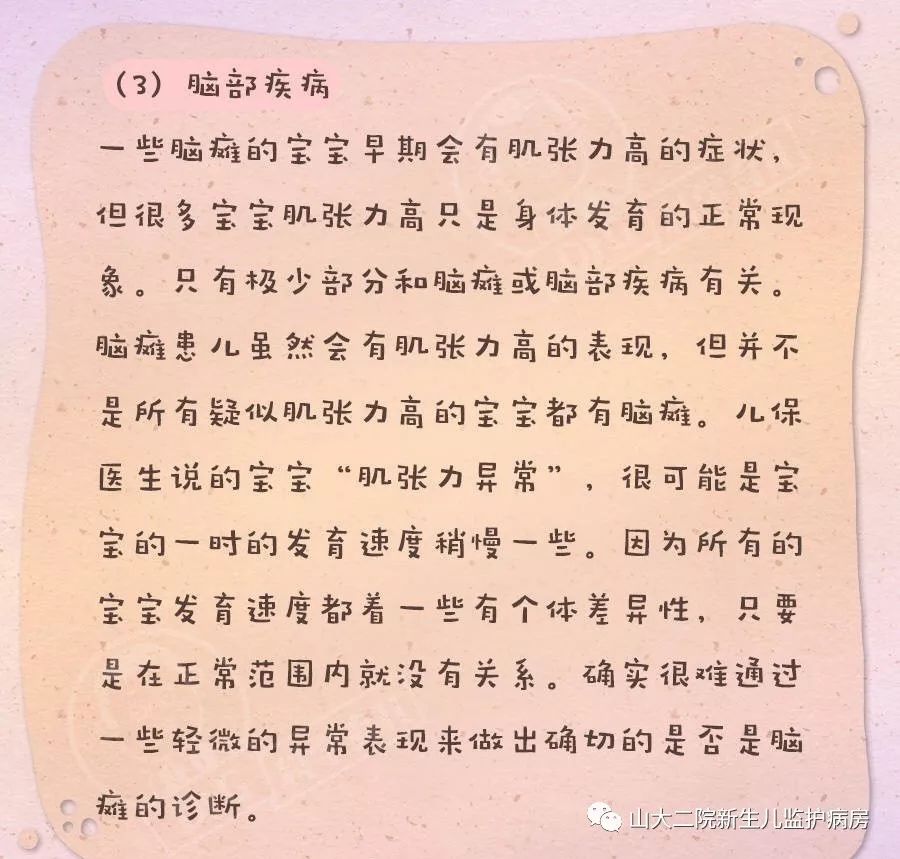 （3）脑部疾病
一些脑瘫的宝宝早期会有肌张力高的症状，
但很多宝宝肌张力高只是身体发育的正常现
象。只有极少部分和脑瘫或脑部疾病有关。
脑瘫患儿虽然会有肌张力高的表现，但并不
是所有疑似肌张力高的宝宝都有脑瘫。儿保
医生说的宝宝“肌张力异常”，很可能是宝
宝的一时的发育速度稍慢一些。因为所有的
宝宝发育速度都着一些有个体差异性，只要
是在正常范围内就没有关系。确实很难通过
一些轻微的异常表现来做出确切的是否是脑
瘫的诊断。
山大二院新生儿监护病房